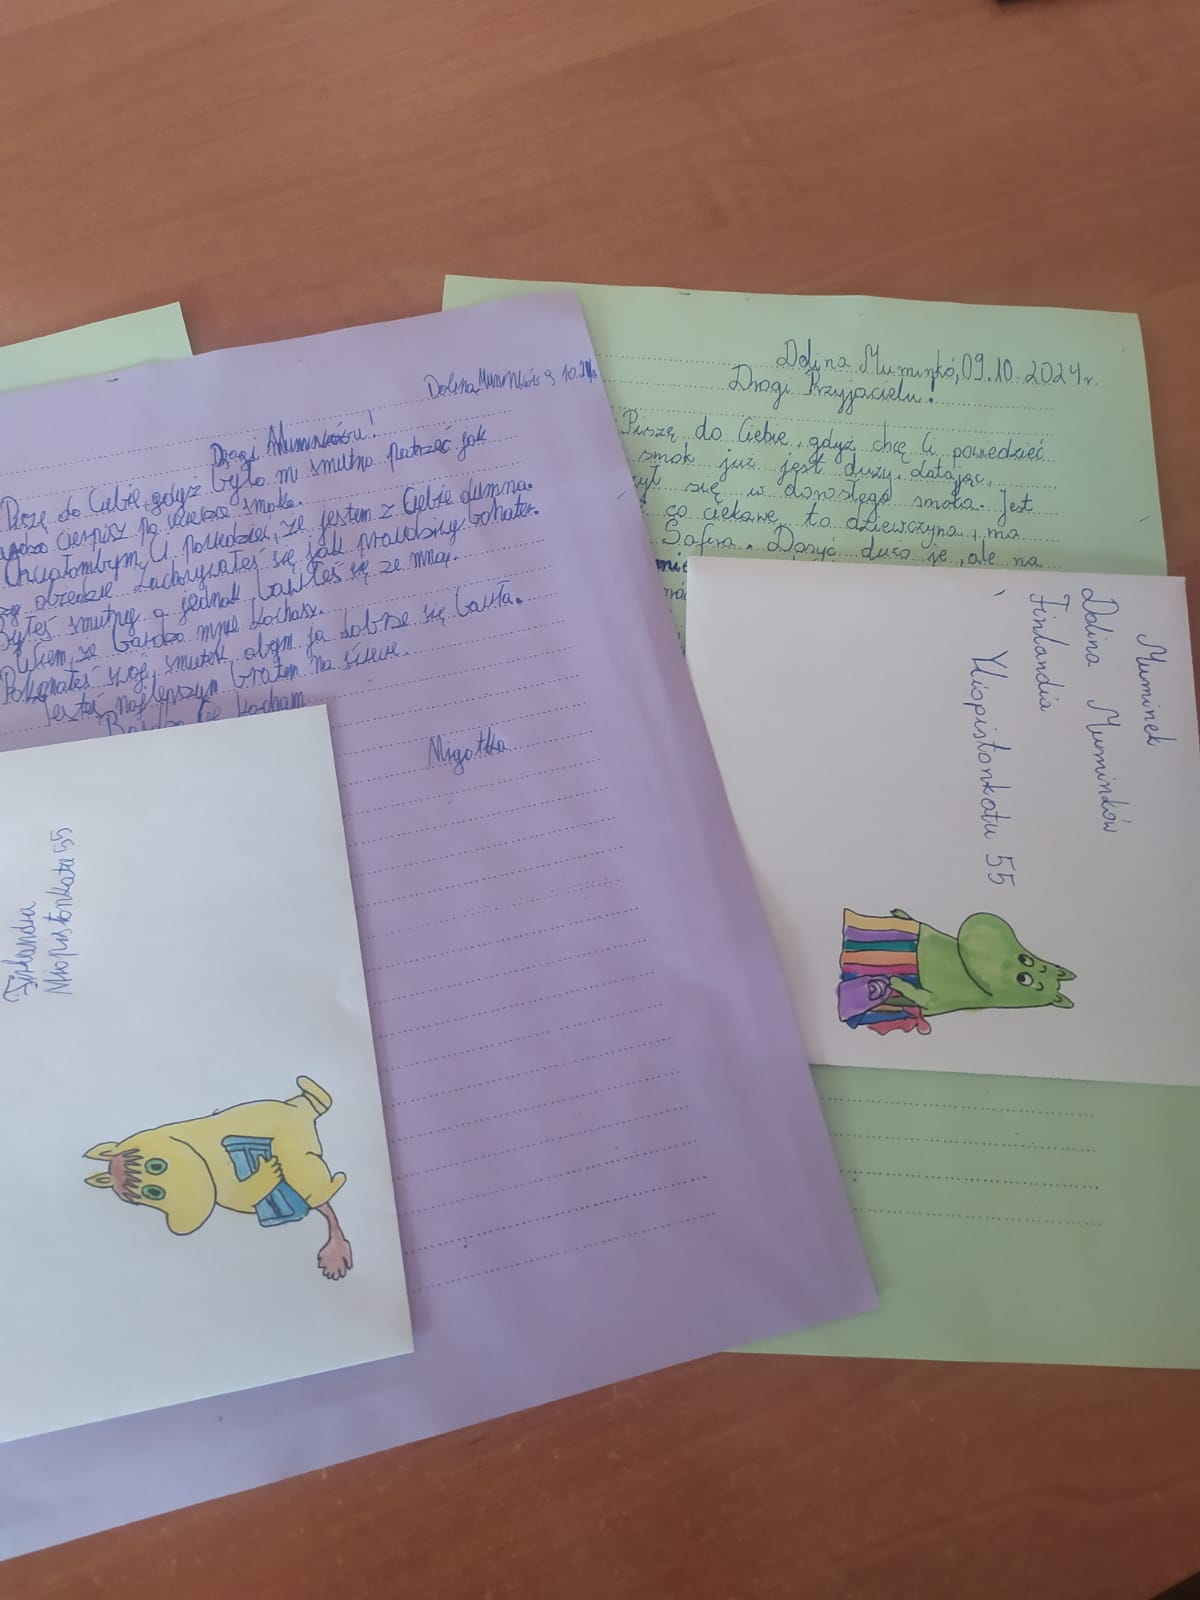 Dolina Muminków 9.10.24r.
Drogi Muminku!
Piszę do Ciebie, gdyż było mi smutno patrzeć jak
cierpisz po smoka.
Chciałambym Ci powiedzieć, że jestem z Ciebie dumna.
obrzedzie zachowywałeś się jak prawdziwy bohater.
Byłeś smutny a jednak bawiłeś się ze mną.
Wiem, że bardzo mnie kochasz.
Pokonałeś swój smutek, abym ja dobrze się bawiła.
Jesteś najlepszym bratem na świecie.
Bardzo Cię kocham
Migotka
Finlandia
Yliopistonkatu 55
Dolina Muminkó, 09.10.2024r.
Drogi Przyjacielu!
Piszę do Ciebie, gdyż chcę Ci powiedzieć
smok już jest duży, latając,
się w dorosłego smoka. Jest
co ciekawe, to dziewczyna, ma
Safira. Dosyć dużo je, ale na
Muminek
Dolina Muminków
Finlandia
Yliopistonkatu 55